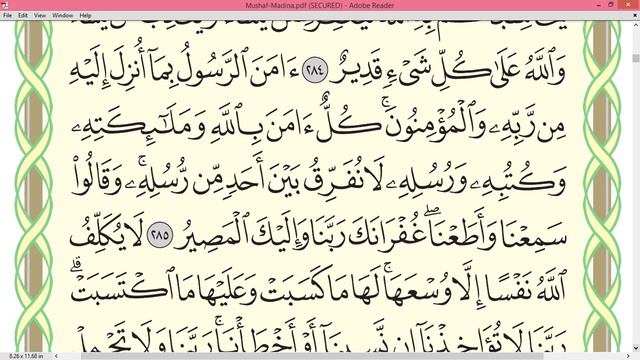 Mushaf-Madina.pdf (SECURED) - Adobe Reader
File Edit View Window Help
وَٱللَّهُ عَلَىٰ كُلِّ شَىْءٍ قَدِيرٌ ٢٨٤ ءَامَنَ ٱلرَّسُولُ بِمَآ أُنزِلَ إِلَيْهِ
مِن رَّبِّهِۦ وَٱلْمُؤْمِنُونَ ۚ كُلٌّ ءَامَنَ بِٱللَّهِ وَمَلَـٰٓئِكَتِهِۦ
وَكُتُبِهِۦ وَرُسُلِهِۦ لَا نُفَرِّقُ بَيْنَ أَحَدٍ مِّن رُّسُلِهِۦ ۚ وَقَالُوا۟
سَمِعْنَا وَأَطَعْنَا ۖ غُفْرَانَكَ رَبَّنَا وَإِلَيْكَ ٱلْمَصِيرُ ٢٨٥ لَا يُكَلِّفُ
ٱللَّهُ نَفْسًا إِلَّا وُسْعَهَا ۚ لَهَا مَا كَسَبَتْ وَعَلَيْهَا مَا ٱكْتَسَبَتْ ۗ
رَبَّنَا لَا تُؤَاخِذْنَآ إِن نَّسِينَآ أَوْ أَخْطَأْنَا ۚ رَبَّنَا وَلَا تَحْمِلْ
8.26 x 11.68 in